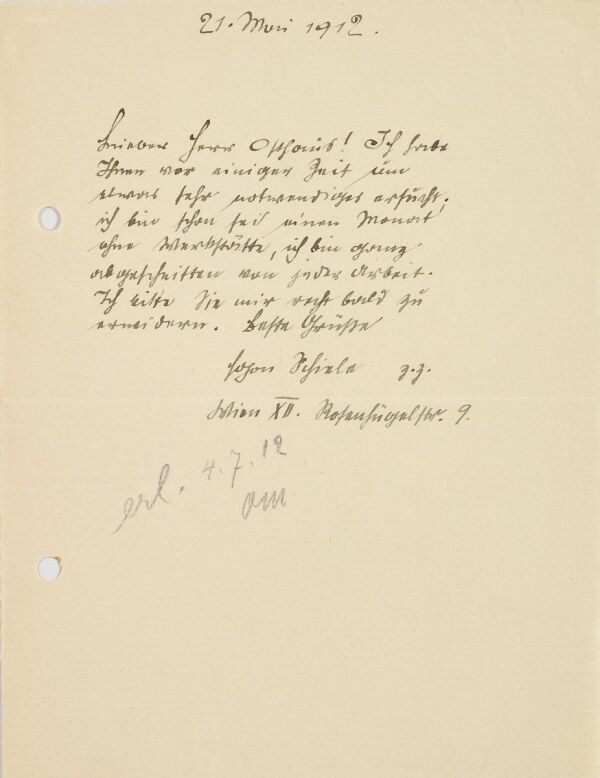 21. Mai 1912.
Lieber Herr Osthaus! Ich habe
Ihnen vor einiger Zeit um
etwas sehr notwendiges ersucht.
ich bin schon seit einen Monat
ohne Werkstätte, ich bin ganz
abgeschnitten von jeder Arbeit.
Ich bitte Sie mir recht bald zu
erwidern. Beste Grüße
Egon Schiele z.Z.
Wien XII. Rosenhügelstr. 9.
erl. 4.7.12